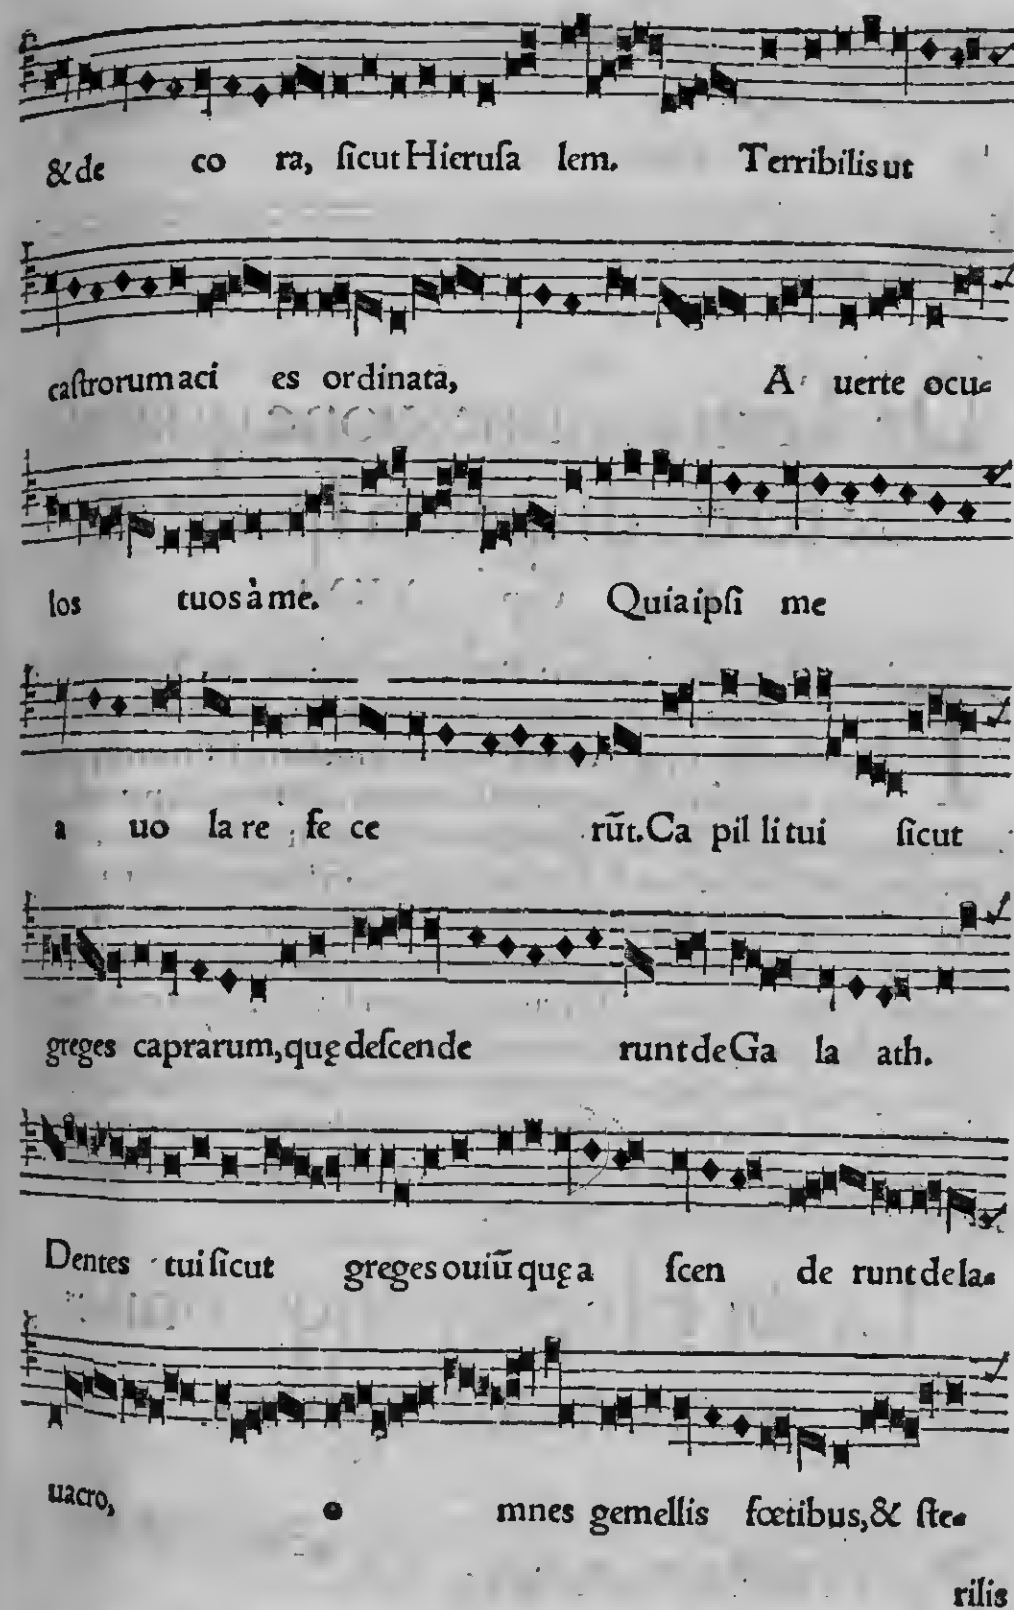 & de co ra, ſicut Hieruſa lem. Terribilis ut
caſtrorum aci es ordinata, A uerte ocu-
los tuos à me. Quia ipſi me
a uo la re fe ce rūt. Ca pil li tui ſicut
greges caprarum, quę deſcende runt de Ga la ath.
Dentes tui ſicut greges ouiū quę a ſcen de runt de la-
uacro, o mnes gemellis fœtibus, & ſte-
rilis